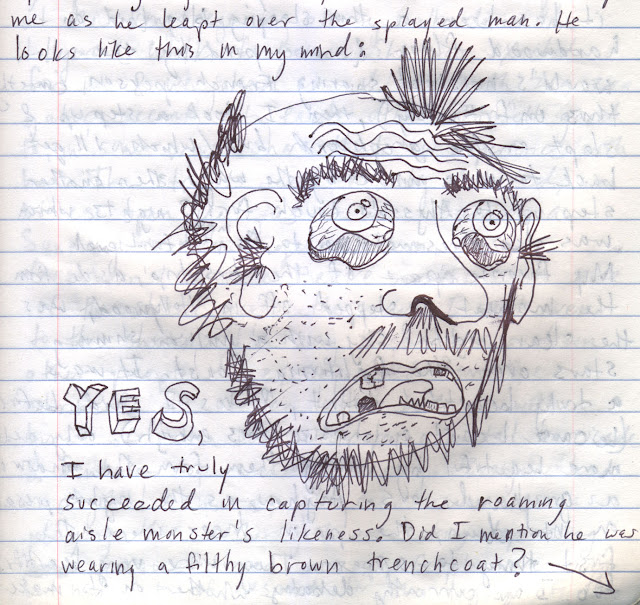 me as he leapt over the splayed man. He
looks like this in my mind:
YES,
I have truly
succeeded in capturing the roaming
aisle monster's likeness. Did I mention he was
wearing a filthy brown trenchcoat?